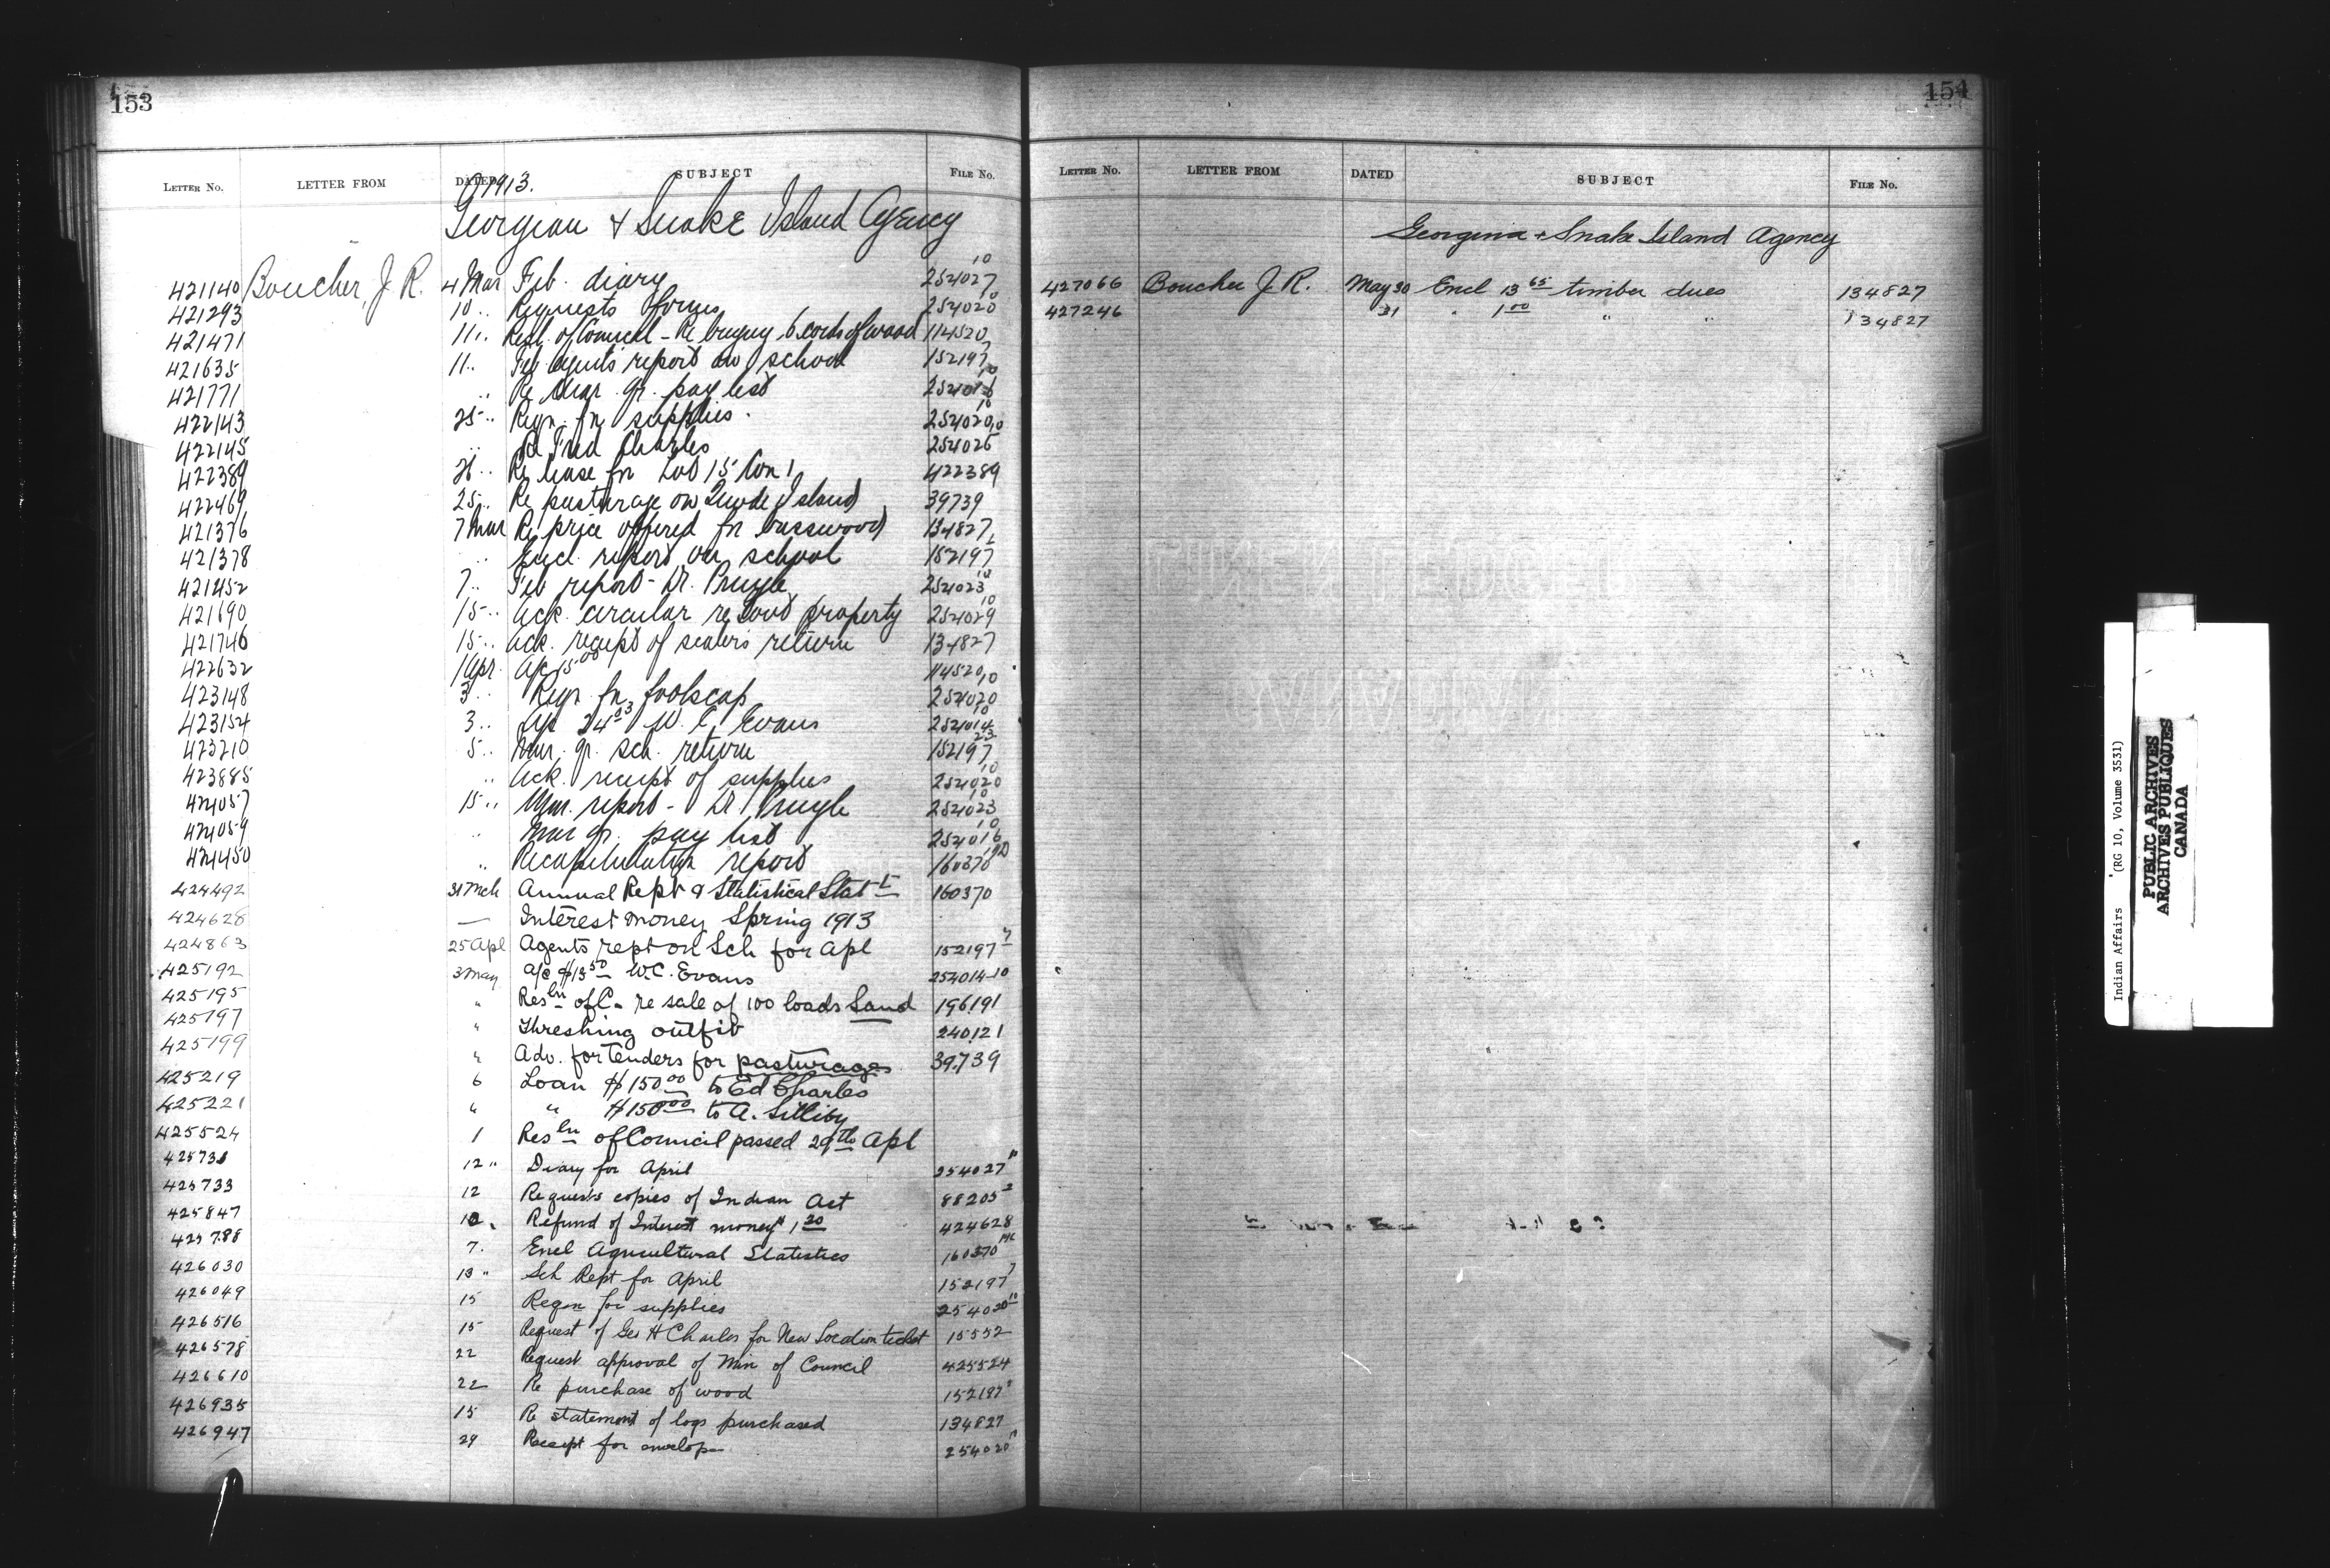 153
LETTER No. LETTER FROM DATED SUBJECT FILE No.
1913.
Georgian & Snake Island Agency
421140 Boucher, J. R. 4 Mar Feb. diary 254027 10
421293 10 " Requests forms 254020 10
421471 11 " Resl. of Council - Re buying 6 cords of wood 114520
421635 11 " Feb agents report on school 152197 7
421771 " Re Mar. qr. pay list 254016 10
422143 25 " Reqn. for supplies. 254020 10
422145 " Re Fred Charles 254025 10
422389 26 " Re lease for Lot 15 Con 1 422389
422469 25 " Re pasturage on Snake Island 39739
421376 7 Mar Re price offered for basswood 134827
421378 " Encl. report on school 152197
421452 7 " Feb report - Dr. Pringle 254023 10
421690 15 " Ack. circular re Govt property 254029 10
421746 15 " Ack. receipt of sealers return 134827
422632 1 Apr. A/c 15 00 114520
423148 3 " Reqn. for foolscap 254020 10
423154 3 " A/c 24 03 W. C. Evans 254014 10
423210 5 " Mar. qr. sch. return 152197 23
423885 " Ack. receipt of supplies 254020 10
424057 15 " Mar. report - Dr Pringle 254023 10
424059 " Mar qr. pay list 254016 10
424450 " Recapitulation report 160370
424492 31 Mch Annual Rept & Statistical Stat t 160370
424628 — Interest money Spring 1913
424863 25 Apl Agents rept on Sch for Apl 152197 7
425192 3 May A/c $13 50 W.C. Evans 254014-10
425195 " Res ln of C. re sale of 100 loads Sand 196191
425197 " Threshing outfit 240121
425199 " Adv. for Tenders for pasturages 39739
425219 6 Loan $150 00 to Ed Charles
425221 " " $150 00 to A.
425524 1 Res ln of Council passed 29th Apl
425731 12 " Diary for April 254027 10
425733 12 Requests copies of Indian Act 88205 2
425847 12 Refund of Interest money $1.20 424628
425788 7. Encl Agricultural Statistics 160370
426030 13 " Sch Rept for April 152197 7
426049 15 Reqon for supplies 254020 10
426516 15 Request of Geo H Charles for New Location ticket 15552
426578 22 Request approval of Min of Council 425524
426610 22 Re purchase of wood 152197
426935 15 Re statement of logs purchased 134827
426947 29 Receipt for envelops 254020
154
LETTER No. LETTER FROM DATED SUBJECT FILE No.
Georgina & Snake Island Agency
427066 Boucher J. R. May 30 Encl 13 65 timber dues 134827
427246 31 " 1 00 " " 134827
Indian Affairs (RG 10, Volume 3531)
PUBLIC ARCHIVES
ARCHIVES PUBLIQUES
CANADA